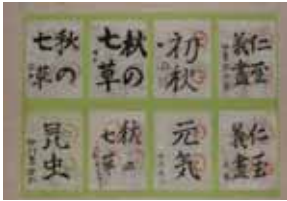 秋の
七草
秋の
七草
初
秋
仁至
義盡
昆
虫
秋の
七草
元
気
仁至
義盡